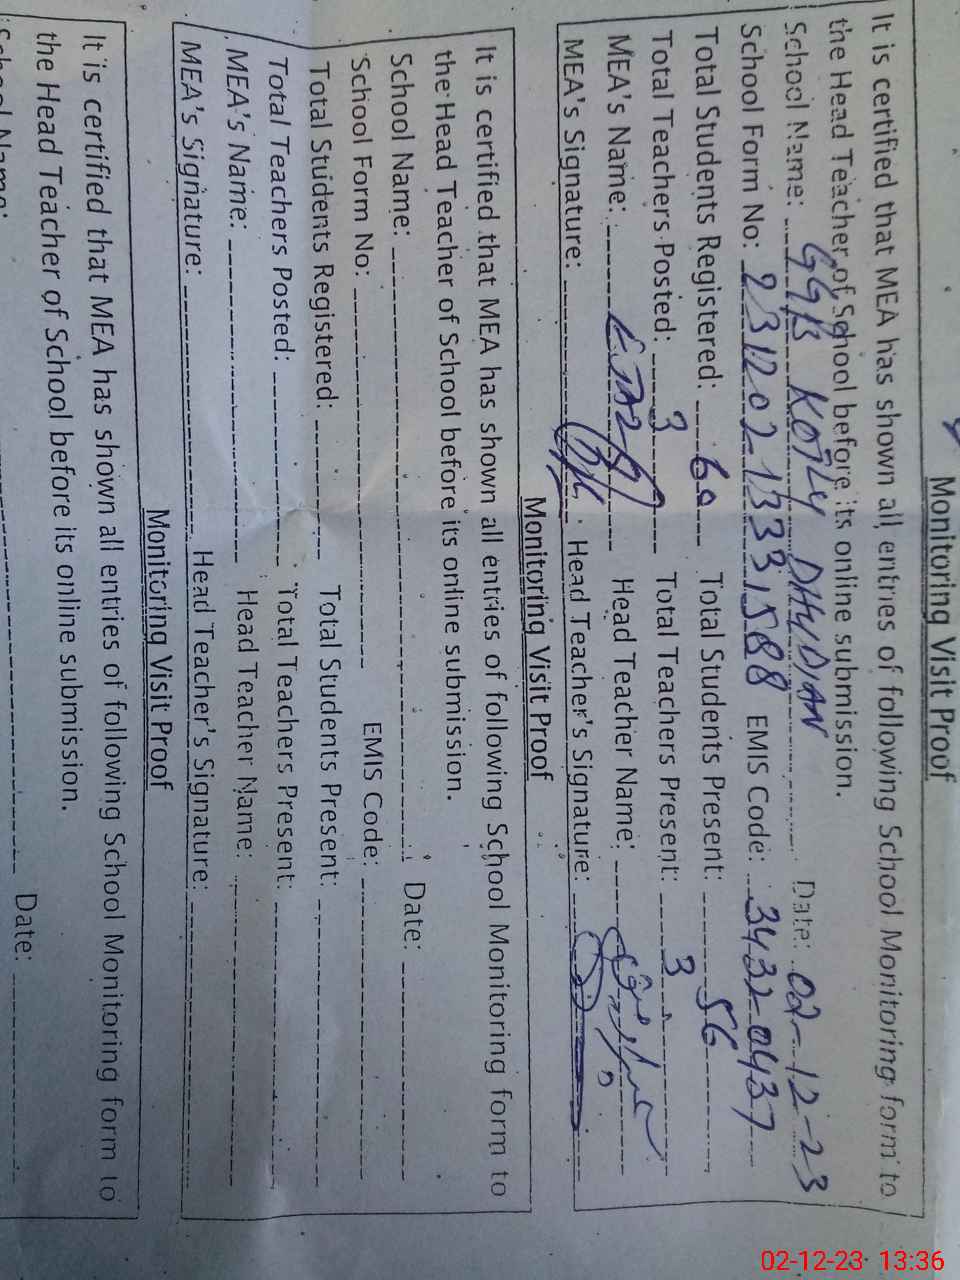 Monitoring Visit Proof
It is certified that MEA has shown all entries of following School Monitoring form to
the Head Teacher of School before its online submission.
School Name: GGPS KOTLY DAUDIAN Date: 02-12-23
School Form No: 231202-13331588 EMIS Code: 34320437
Total Students Registered: 60 Total Students Present: 56
Total Teachers Posted: 3 Total Teachers Present: 3
MEA's Name: Head Teacher Name:
MEA's Signature: Head Teacher's Signature:
Monitoring Visit Proof
It is certified that MEA has shown all entries of following School Monitoring form to
the Head Teacher of School before its online submission.
School Name: Date:
School Form No: EMIS Code:
Total Students Registered: Total Students Present:
Total Teachers Posted: Total Teachers Present:
MEA's Name: Head Teacher Name:
MEA's Signature: Head Teacher's Signature:
Monitoring Visit Proof
It is certified that MEA has shown all entries of following School Monitoring form to
the Head Teacher of School before its online submission.
School Name: Date:
02-12-23 13:36